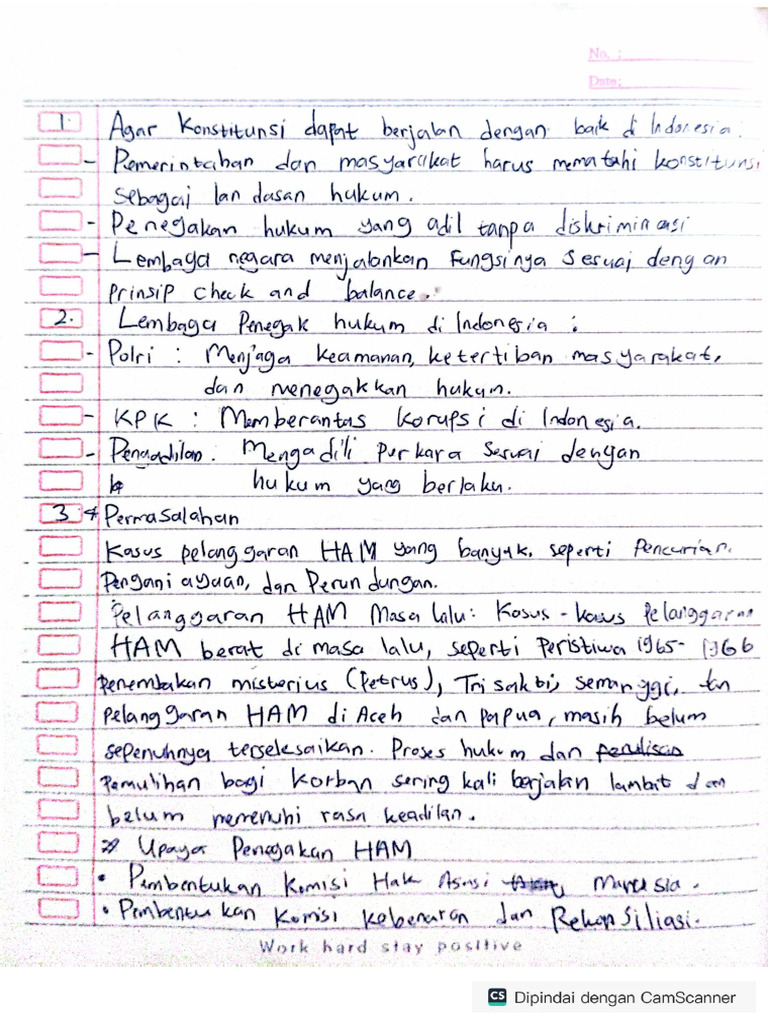 No. :
Date:
1. Agar Konstitunsi dapat berjalan dengan baik di Indonesia.
- Pemerintahan dan masyarakat harus mematahi konstitunsi
sebagai landasan hukum.
- Penegakan hukum yang adil tanpa diskriminasi
- Lembaga negara menjalankan Fungsinya sesuai dengan
prinsip check and balance.
2. Lembaga Penegak hukum di Indonesia :
- Polri : Menjaga keamanan, ketertiban masyarakat,
dan menegakkan hukum.
- KPK : Memberantas Korupsi di Indonesia.
- Pengadilan : Mengadili Purkara sesuai dengan
hukum yang berlaku.
3 * Permasalahan
Kasus pelanggaran HAM yang banyak, seperti Pencurian,
Penganiayaan, dan Perundungan.
Pelanggaran HAM Masa lalu : Kasus-kasus Pelanggaran
HAM berat di masa lalu, seperti Peristiwa 1965-1966
Penembakan misterius (Petrus), Trisakti, Semanggi,
Pelanggaran HAM di Aceh dan Papua, masih belum
sepenuhnya terselesaikan. Proses hukum dan
Pemulihan bagi korban sering kali berjalan lambat dan
belum memenuhi rasa keadilan.
Upaya Penegakan HAM
• Pembentukan Komisi Hak Asasi Manusia.
• Pembentukan Komisi Kebenaran dan Rekonsiliasi.
Work hard stay positive
CS Dipindai dengan CamScanner